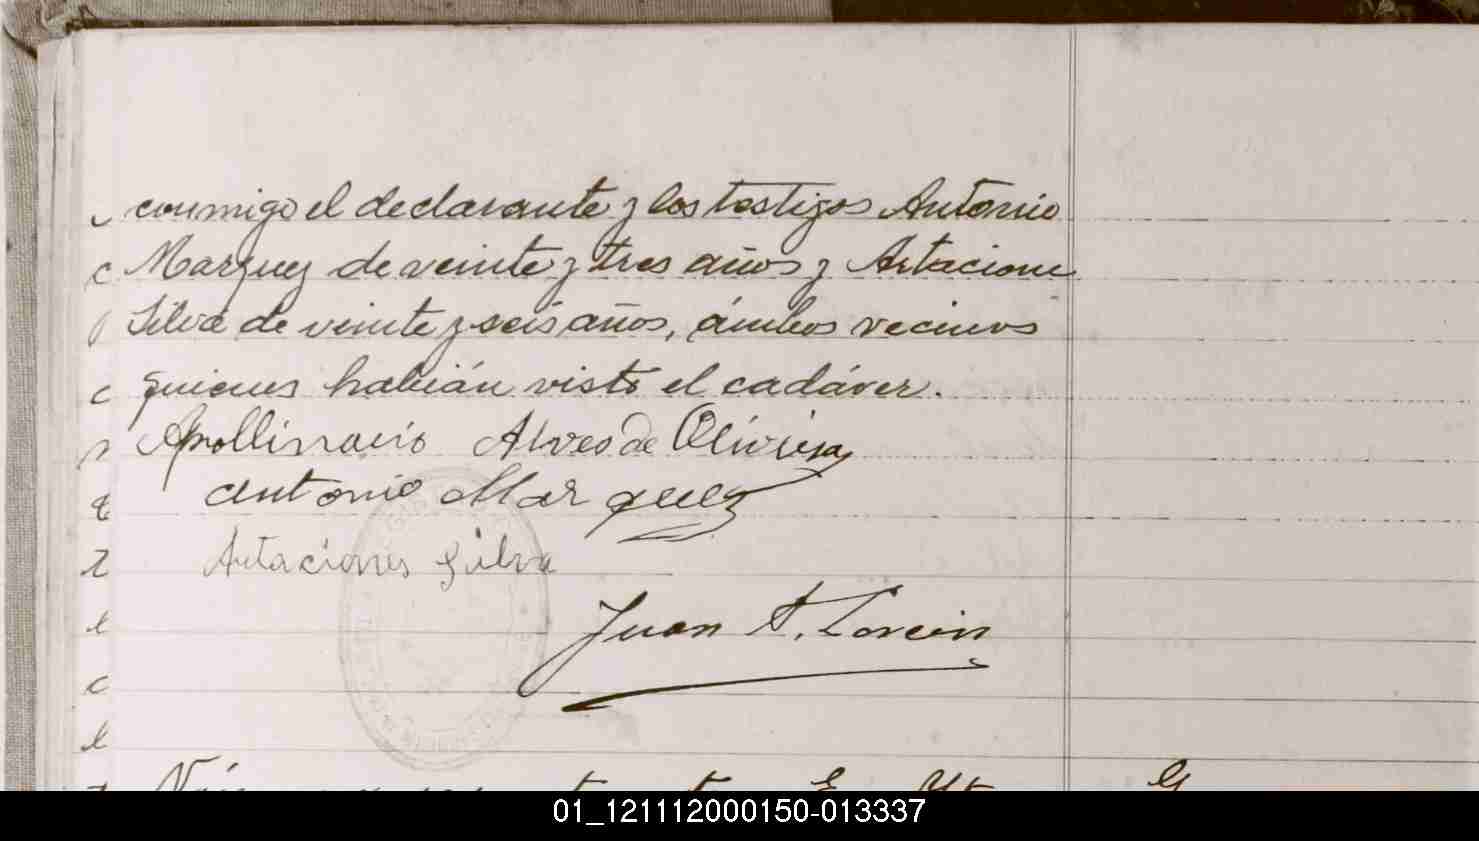 conmigo el declarante y los testigos Antonio
Marquez de veinte y tres años y Artacione
Silva de veinte y seis años, ámbos vecinos
quienes habián visto el cadáver.
Apollinario Alves de Oliviera
Antonio Marquez
Artaciones Silva
Juan A.
01_121112000150-013337